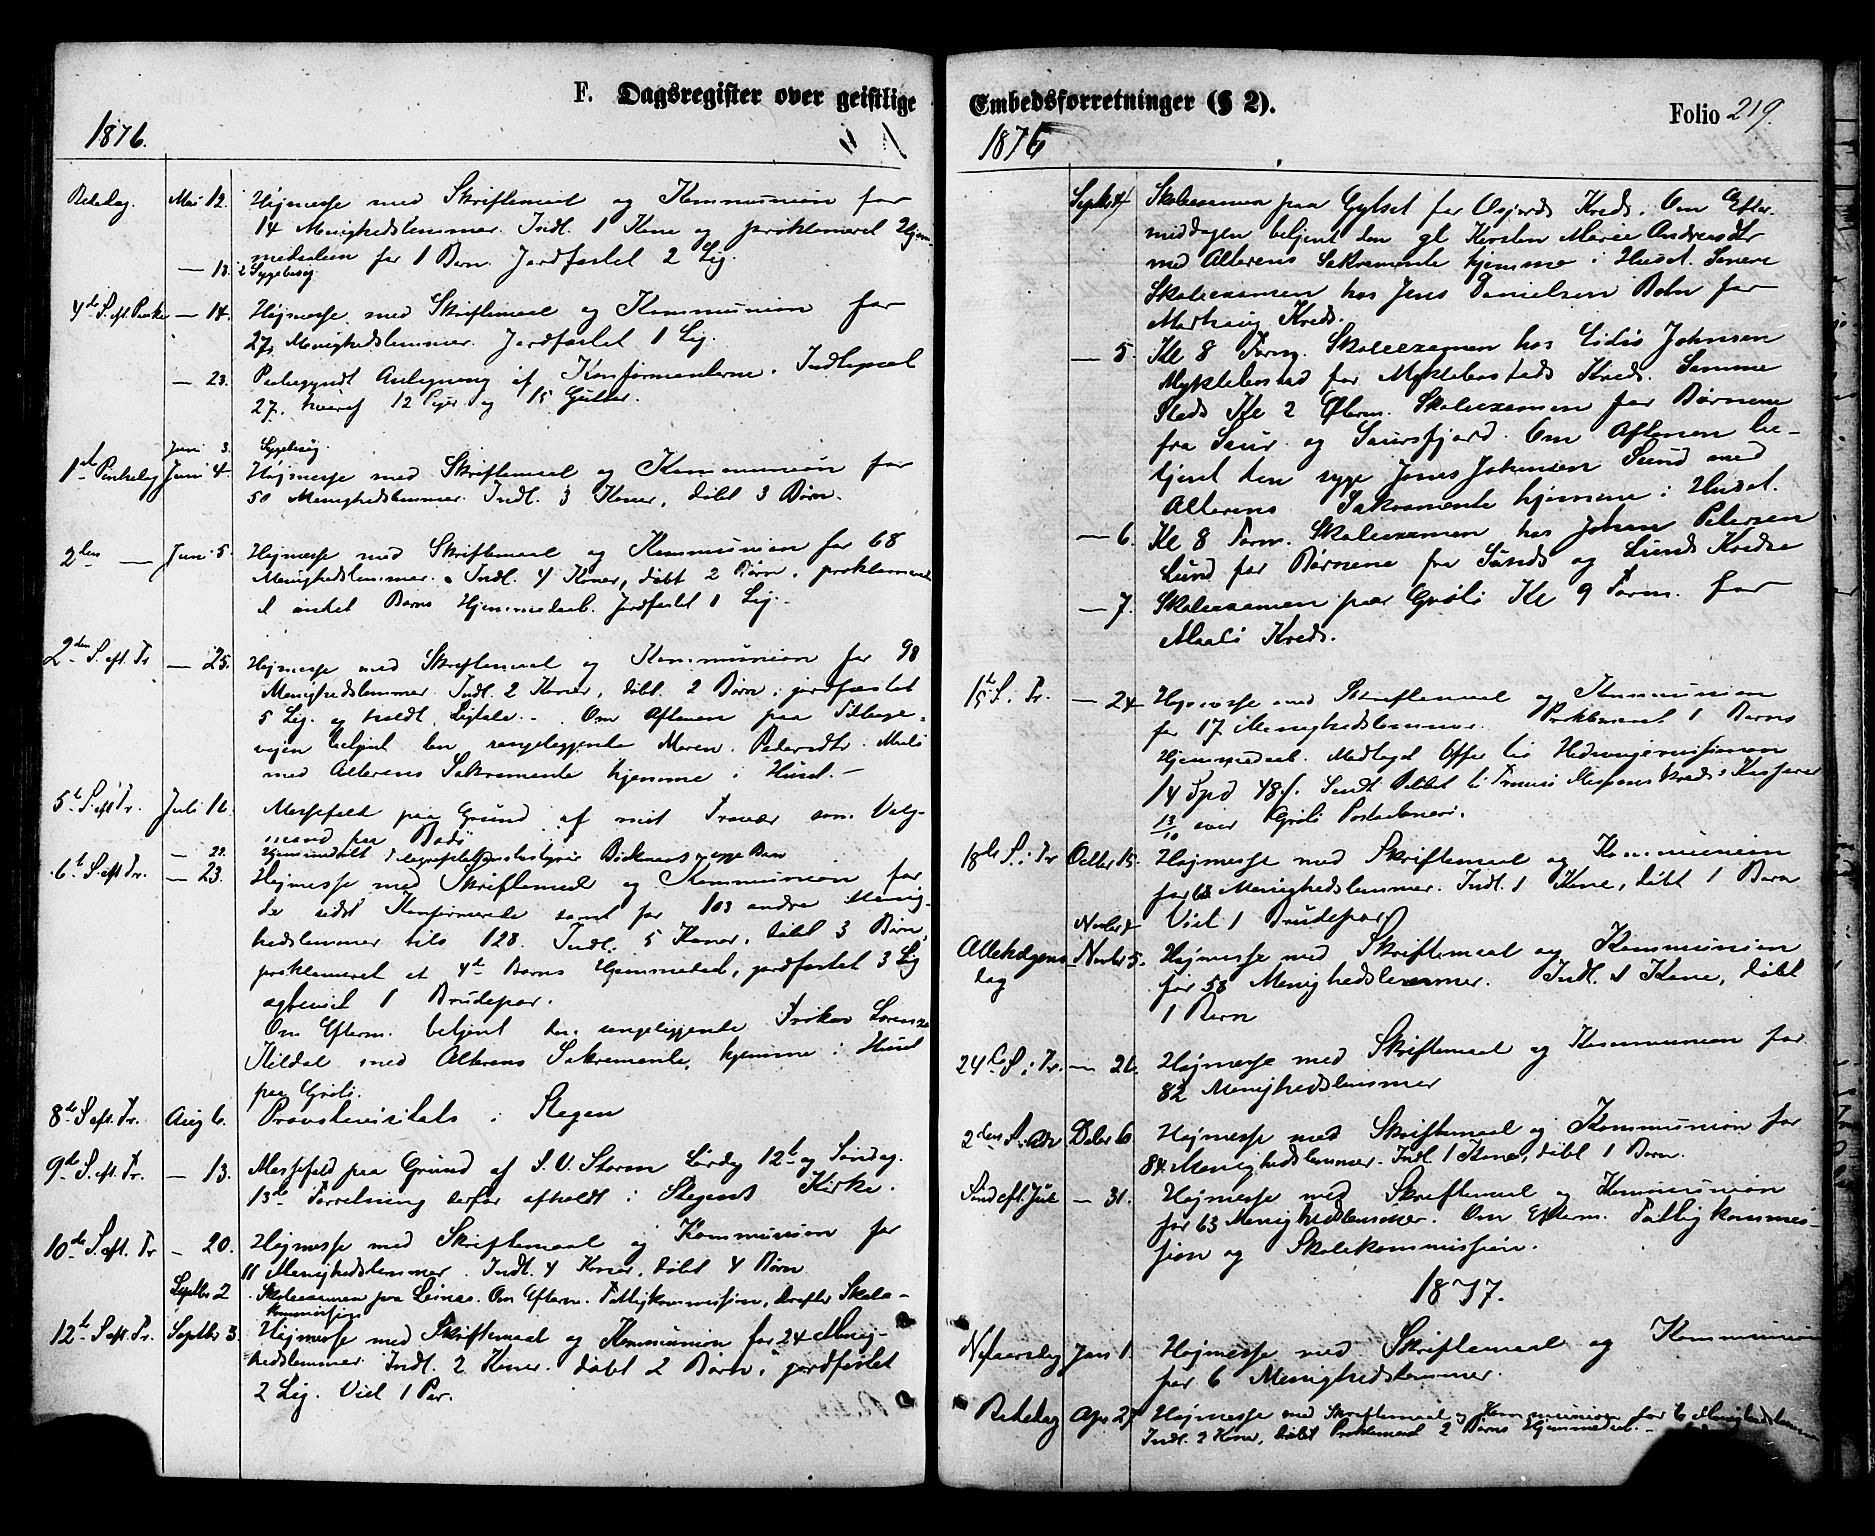 F. Dagsregister over geistlige
1876.
Bededag. Mai 12. Højmesse med Skriftemaal og Kommunion for
14 Menighedslemmer. Indl. 1 Kone og proklameret 2 Hjem-
medaaben for 1 Barn. Jordfæstet 2 Lig.
— 13. 2 Sygebesøg
4de S. eft. Paaske — 14. Højmesse med Skriftemaal og Kommunion for
27 Menighedslemmer. Jordfæstet 1 Lig.
— 23. Paabegyndt Anlegning af Konfirmanderne. Indtegnet
27, hvoraf 12 Piger og 15 Gutter.
Juni 3. Sygebesøg
1ste Pinkedag Juni 4. Højmesse med Skriftemaal og Kommunion for
50 Menighedslemmer. Indl. 3 Koner, døbt 3 Børn.
2den — Juni 5. Højmesse med Skriftemaal og Kommunion for 68
Menighedslemmer. Indl. 4 Koner, døbt 2 Børn, proklameret
et andet Barns Hjemmedaab. Jordfæstet 1 Lig.
2den S. eft. Tr. — 25. Højmesse med Skriftemaal og Kommunion for 98
Menighedslemmer. Indl. 2 Koner, døbt 2 Børn, jordfæstet
5 Lig og holdt Ligtale. Om Aftenen paa Tilbage-
vejen betjent den sengeliggende Maren Pedersdtr. Maalø
med Alterens Sakramente hjemme i Huset.
5te S. eft. Tr. Juli 16. Messefald paa Grund af mit Fravær som Valg-
mand paa Bodø
— 22. Hjemmedøbt Telegrafbestyrer syge Barn
6te S. eft. Tr. — 23. Højmesse med Skriftemaal og Kommunion for
de sidst Konfirmerede samt for 103 andre Menig-
hedslemmer tils. 128. Indl. 5 Koner, døbt 3 Børn,
proklameret et 4de Barns Hjemmedaab, jordfæstet 3 Lig
og viet 1 Brudepar.
Om Efterm. betjent den sengeliggende Frøken Lorenze
Kildal med Alterens Sakramente, hjemme i Huset
paa Grøtø.
8de S. eft. Tr. Aug 6. Provstevisitats i Stegen
9de S. eft. Tr. — 13. Messefald paa Grund af S.V. Storm Lørdg 12te og Søndag
13de. Forretning derfor afholdt i Stegens Kirke.
10de S. eft. Tr — 20. Højmesse med Skriftemaal og Kommunion for
11 Menighedslemmer. Indl. 4 Koner, døbt 4 Børn
Septbr 2 Skoleexamen paa Leines. Om Efterm. Fattigkommission, derefter Skole-
kommission
12te S. eft. Tr. Septbr 3. Højmesse med Skriftemaal og Kommunion for 24 Menig-
hedslemmer Indl. 2 Koner. døbt 2 Børn, jordfæstet
2 Lig. Viet 1 Par.
Embedsforretninger (§ 2).
Folio 219.
1876
Septbr 4 Skoleexamen paa Gylset for Osjords Kreds. Om Efter-
middagen betjent den gl. Kirsten Marie Andreasdtr
med Alterens Sakramente hjemme i Huset. Senere
Skoleexamen hos Jens Danielsen Bohn for
Mørhaug Kreds.
— 5. Kl 8 Form. Skoleexamen hos Johnsen
Myklebostad for Myklebostads Kreds. Samme
Steds Kl 2 Efterm. Skoleexamen for Børnene
fra Saur og Saursfjord. Om Aftenen be-
tjent den syge Jonas Johnsen Sund med
Alterens Sakramente hjemme i Huset.
— 6. Kl 8 Form. Skoleexamen hos Johan Petersen
Lund for Børnene fra Sunds og Lunds Kredse
— 7. Skoleexamen paa Grøtø Kl 9 Form. for
Maalø Kreds.
15de S. i Tr. — 24. Højmesse med Skriftemaal og Kommunion
for 17 Menighedslemmer. Proklameret 1 Barns
Hjemmedaab. Modtaget Offer til Hedningemissionen
14 Spd 48 s. Sendt til Tromsø Missions Kreds's Kasserer
13/10 over Grøtø Postaabneri.
18de S. i Tr. Octbr 15. Højmesse med Skriftemaal og Kommunion
for 68 Menighedslemmer. Indl. 1 Kone, døbt 1 Barn
Novbr Viet 1 Brudepar
Allehelgens-
dag Novbr 5. Højmesse med Skriftemaal og Kommunion
for 58 Menighedslemmer. Indl. 1 Kone, døbt
1 Barn
24de S. i Tr. — 26. Højmesse med Skriftemaal og Kommunion for
82 Menighedslemmer
2den S. i Adv Decbr 10 Højmesse med Skriftemaal og Kommunion for
84 Menighedslemmer. Indl 1 Kone, døbt 1 Barn.
Sønd eft. Jul — 31. Højmesse med Skriftemaal og Kommunion
for 63 Menighedslemmer. Om Efterm. Fattigkommis-
sion og Skolekommission.
1877.
Nytaarsdag Jan 1. Højmesse med Skriftemaal og Kommunion
for 6 Menighedslemmer.
Bededag Apr. 27 Højmesse med Skriftemaal og Kommunion for 6 Menighedslemmer
Indl. 2 Koner, døbt Proklameret 2 Børns Hjemmedaab.